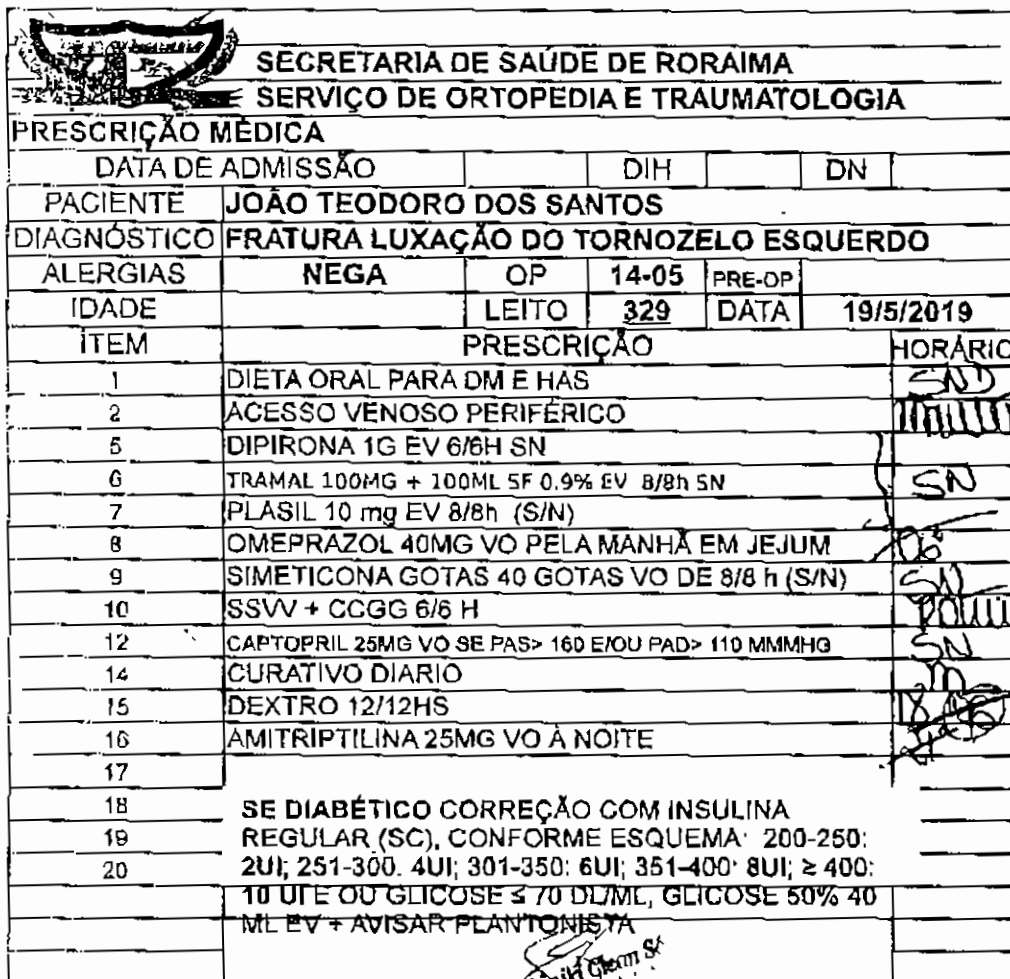 SECRETARIA DE SAÚDE DE RORAIMA
SERVIÇO DE ORTOPEDIA E TRAUMATOLOGIA
PRESCRIÇÃO MÉDICA
DATA DE ADMISSÃO DIH DN
PACIENTE JOÃO TEODORO DOS SANTOS
DIAGNÓSTICO FRATURA LUXAÇÃO DO TORNOZELO ESQUERDO
ALERGIAS NEGA OP 14-05 PRE-OP
IDADE LEITO 329 DATA 19/5/2019
ITEM PRESCRIÇÃO HORÁRIO
1 DIETA ORAL PARA DM E HAS SND
2 ACESSO VENOSO PERIFÉRICO
5 DIPIRONA 1G EV 6/6H SN
6 TRAMAL 100MG + 100ML SF 0.9% EV 8/8h SN SN
7 PLASIL 10 mg EV 8/8h (S/N)
8 OMEPRAZOL 40MG VO PELA MANHÃ EM JEJUM 06
9 SIMETICONA GOTAS 40 GOTAS VO DE 8/8 h (S/N) SN
10 SSVV + CCGG 6/6 H
12 CAPTOPRIL 25MG VO SE PAS> 160 E/OU PAD> 110 MMMHG SN
14 CURATIVO DIARIO
15 DEXTRO 12/12HS 18 06
16 AMITRIPTILINA 25MG VO À NOITE
17
18 SE DIABÉTICO CORREÇÃO COM INSULINA
19 REGULAR (SC), CONFORME ESQUEMA: 200-250:
20 2UI; 251-300. 4UI; 301-350: 6UI; 351-400: 8UI; ≥ 400:
10 UI E OU GLICOSE ≤ 70 DL/ML, GLICOSE 50% 40
ML EV + AVISAR PLANTONISTA